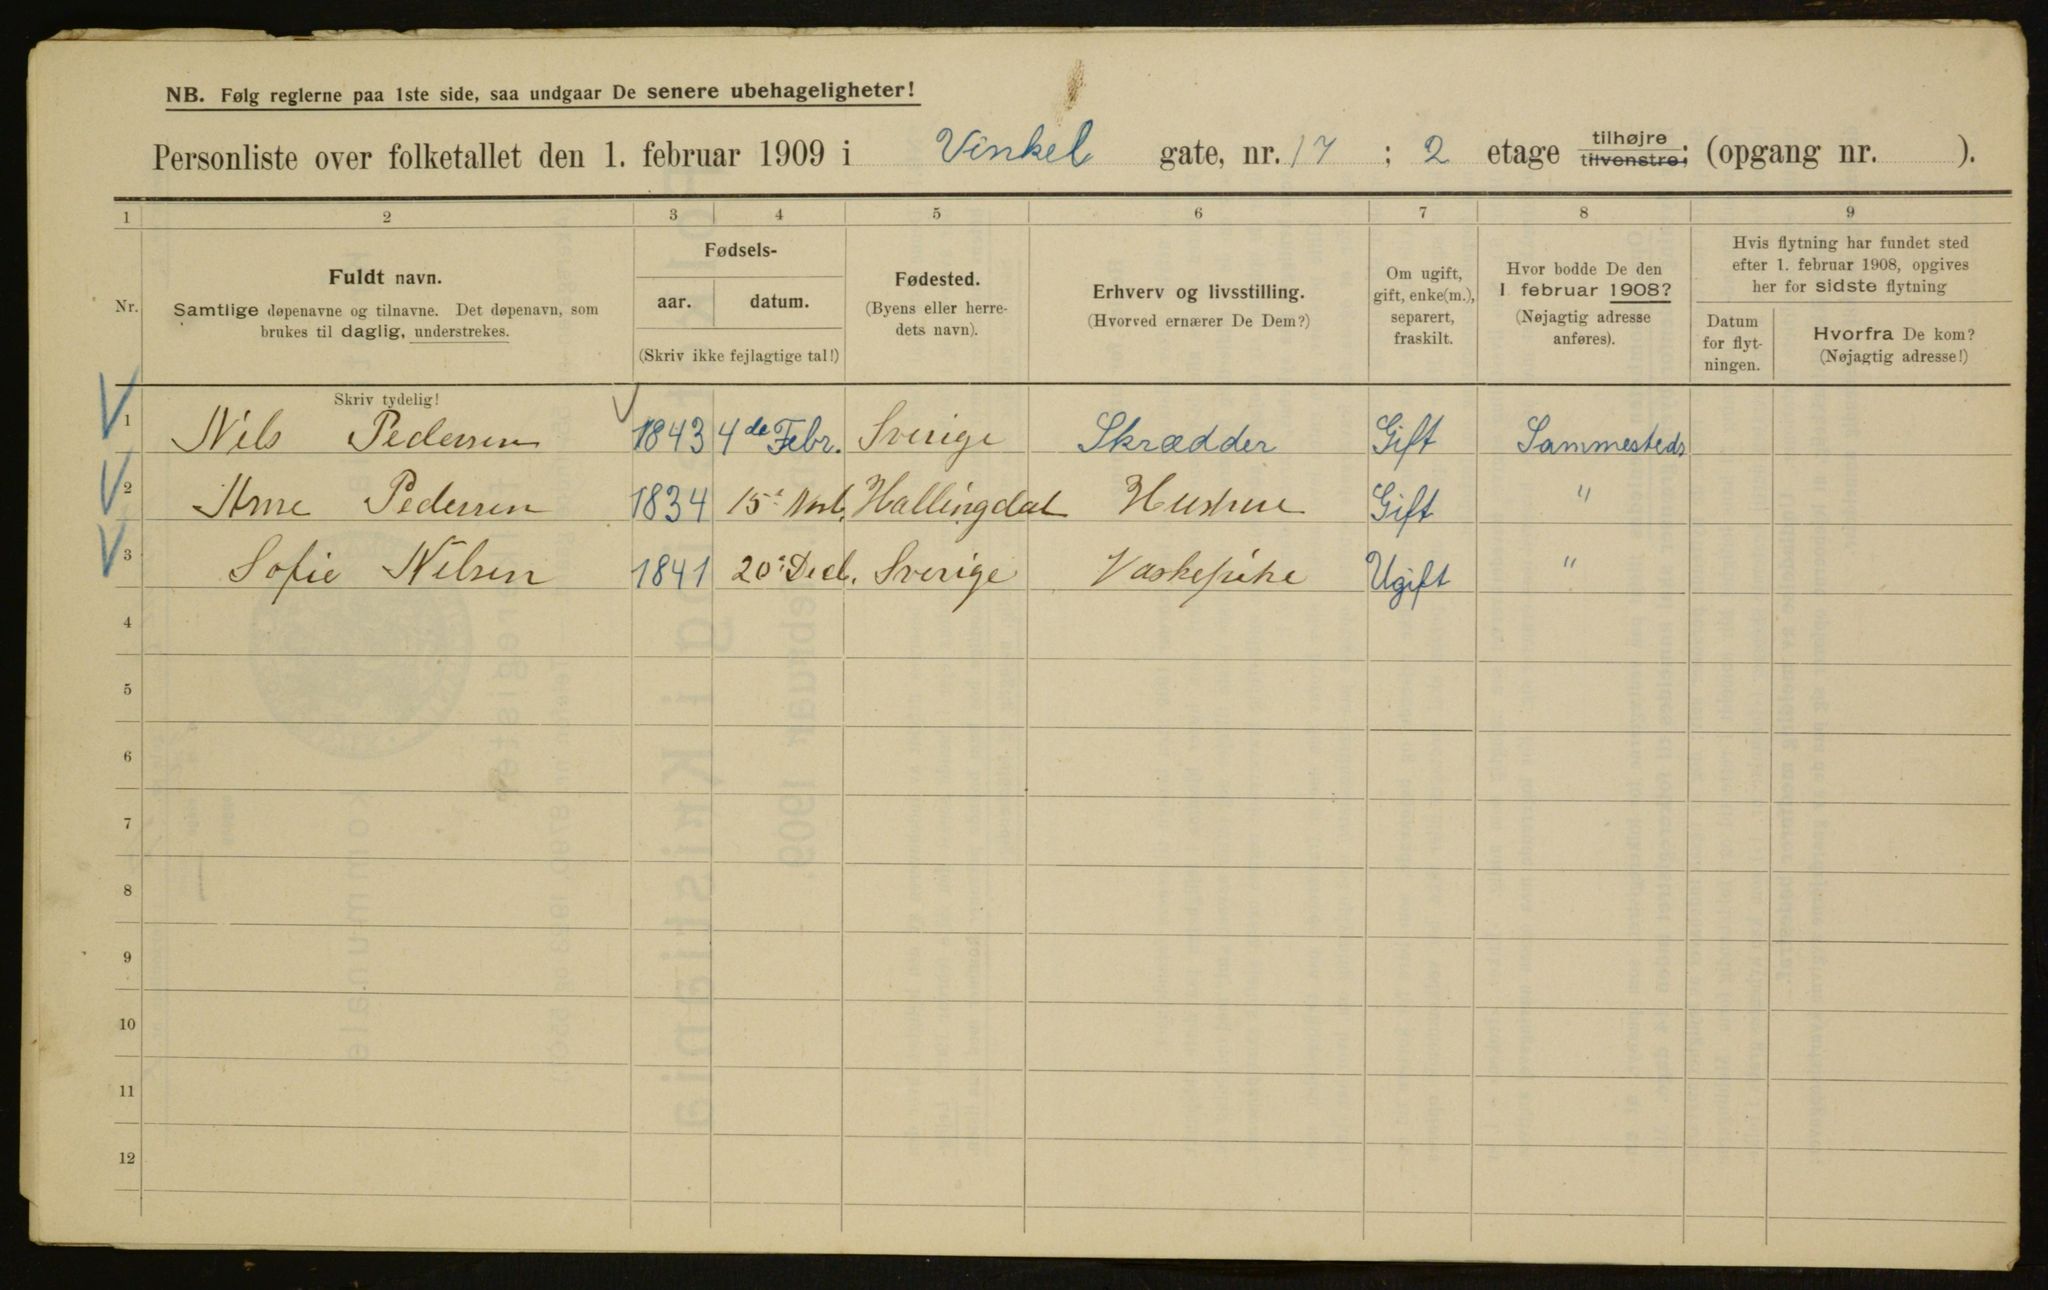 NB. Følg reglerne paa 1ste side, saa undgaar De senere ubehageligheter!
Personliste over folketallet den 1. februar 1909 i Vinkel gate, nr. 17 ; 2 etage tilhøjre tilvenstre; (opgang nr. ).
1 2 3 4 5 6 7 8 9
Nr.
Fuldt navn.
Samtlige døpenavne og tilnavne. Det døpenavn, som
brukes til daglig, understrekes.
Skriv tydelig!
Fødsels-
aar. datum.
(Skriv ikke fejlagtige tal!)
Fødested.
(Byens eller herre-
dets navn).
Erhverv og livsstilling.
(Hvorved ernærer De Dem?)
Om ugift,
gift, enke(m.),
separert,
fraskilt.
Hvor bodde De den
1 februar 1908?
(Nøjagtig adresse
anføres).
Hvis flytning har fundet sted
efter 1. februar 1908, opgives
her for sidste flytning
Datum
for flyt-
ningen.
Hvorfra De kom?
(Nøjagtig adresse!)
1 Nils Pedersen 1843 4de Febr. Sverige Skrædder Gift Sammesteds
2 Pedersen 1834 15 Hallingdal Hustrue Gift "
3 Sofie Nilsen 1841 20 Decb. Sverige Vaskepike Ugift "
4
5
6
7
8
9
10
11
12